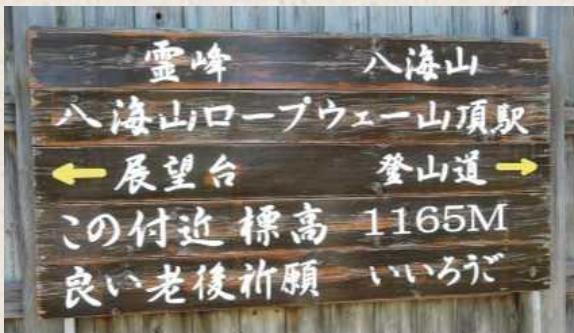 霊峰 八海山
八海山ロープウェー山頂駅
← 展望台 登山道 →
この付近 標高 1165M
良い老後祈願 いいろうご